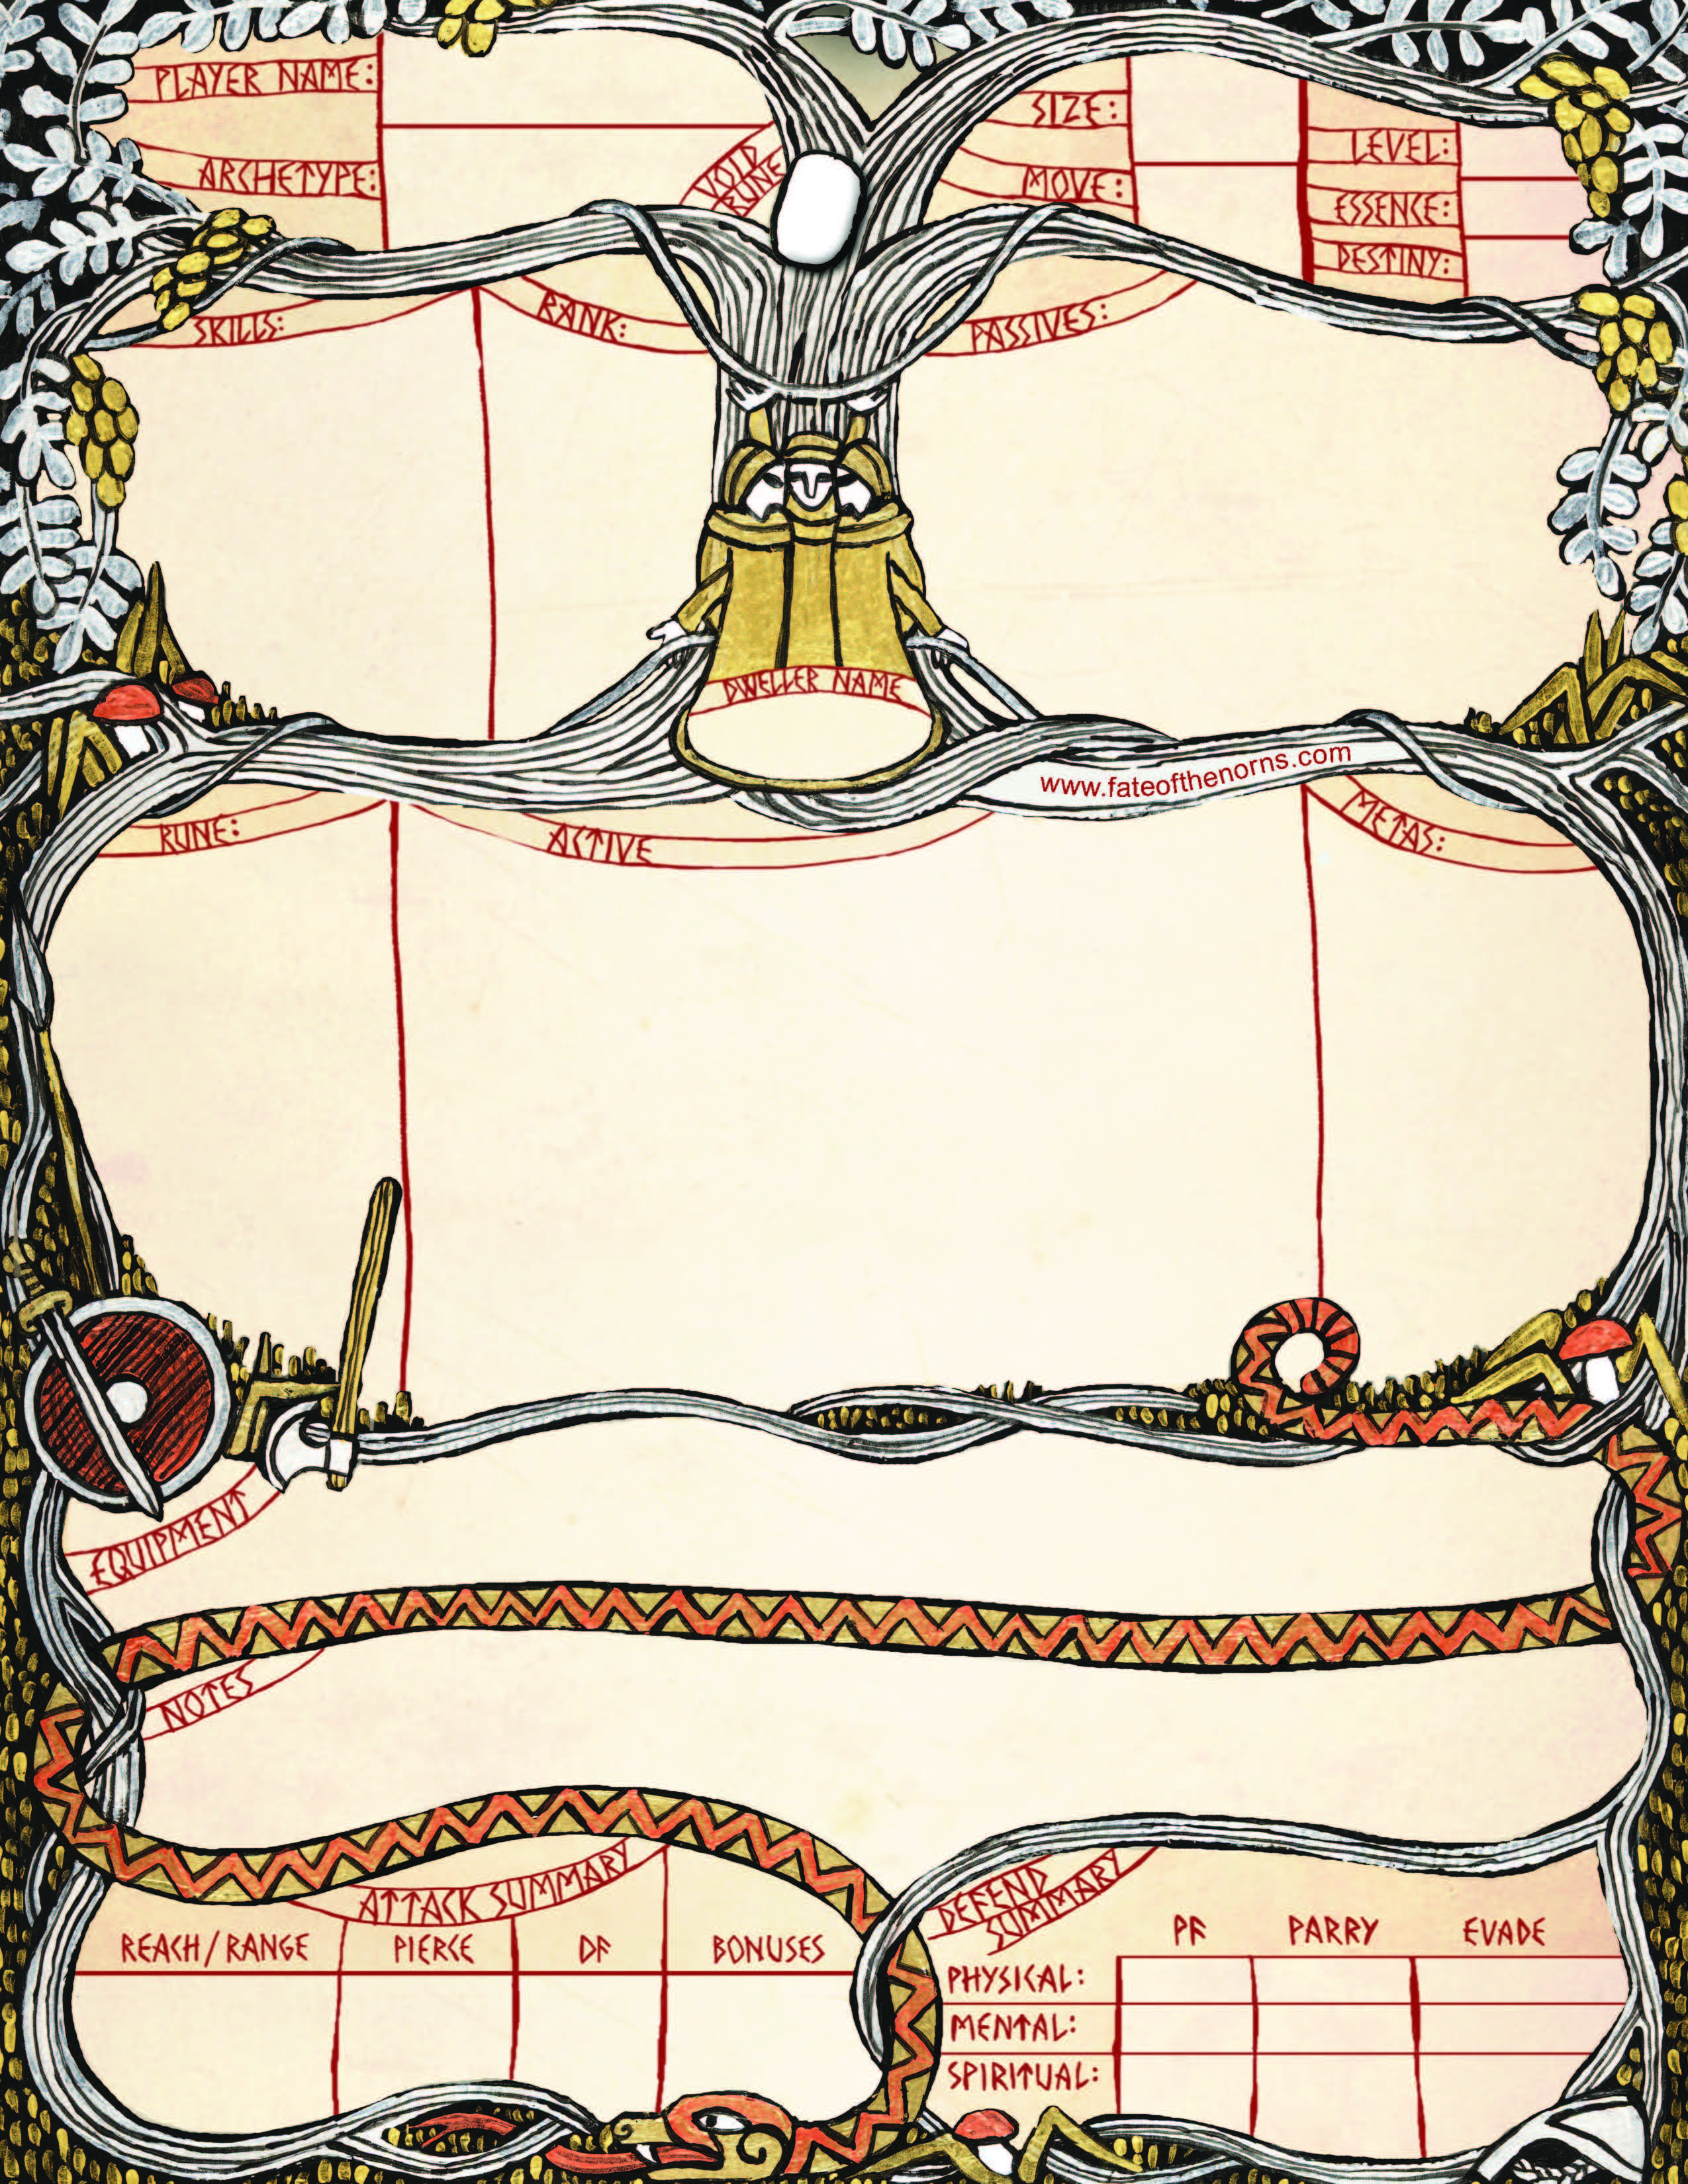 PLAYER NAME:
ARCHETYPE:
VOID
RUNE
SIZE:
MOVE:
LEVEL:
ESSENCE:
DESTINY:
SKILLS:
RANK:
PASSIVES:
DWELLER NAME
www.fateofthenorns.com
RUNE:
ACTIVE
METAS:
EQUIPMENT
NOTES
ATTACK SUMMARY
REACH/RANGE PIERCE DF BONUSES
DEFEND
SUMMARY
PF PARRY EVADE
PHYSICAL:
MENTAL:
SPIRITUAL: